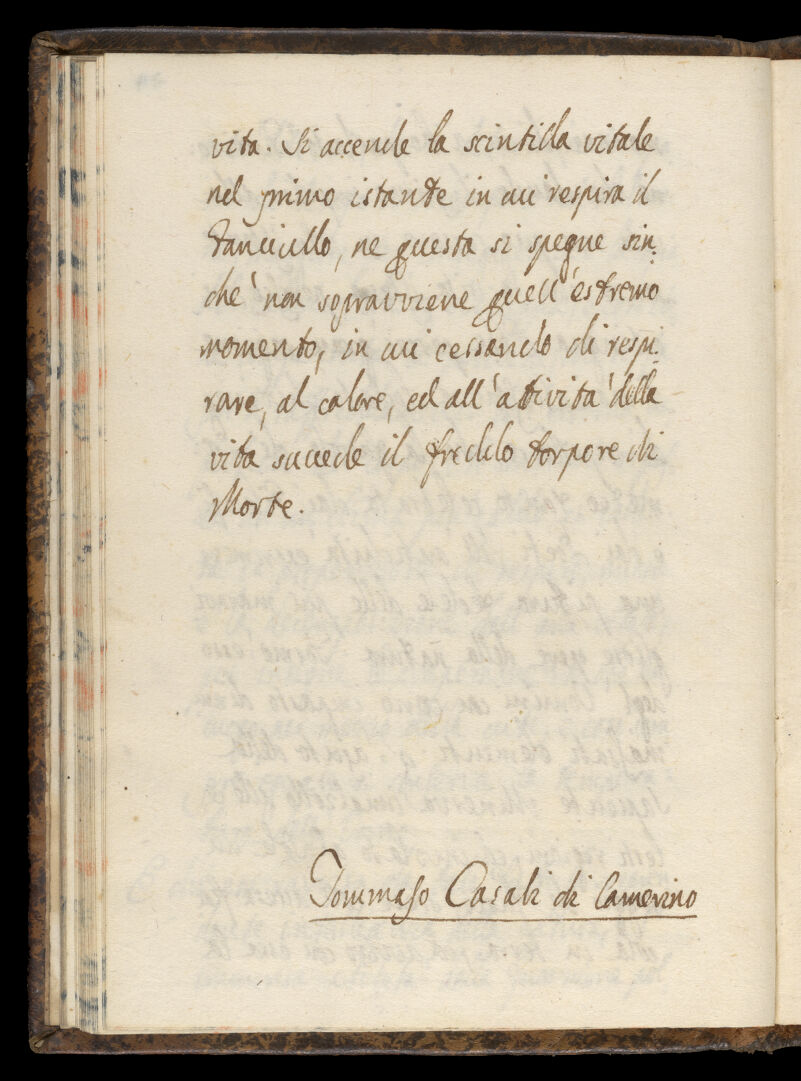 vita. Si accende la scintilla vitale
nel primo istante in cui respira il
fanciullo, ne questa si spegne sin:
che' non sopravviene quell'estremo
momento, in cui cessando di respi:
rare, al calore, ed all'attività della
vita succede il freddo torpore di
Morte.
Tommaso Casali di Camerino